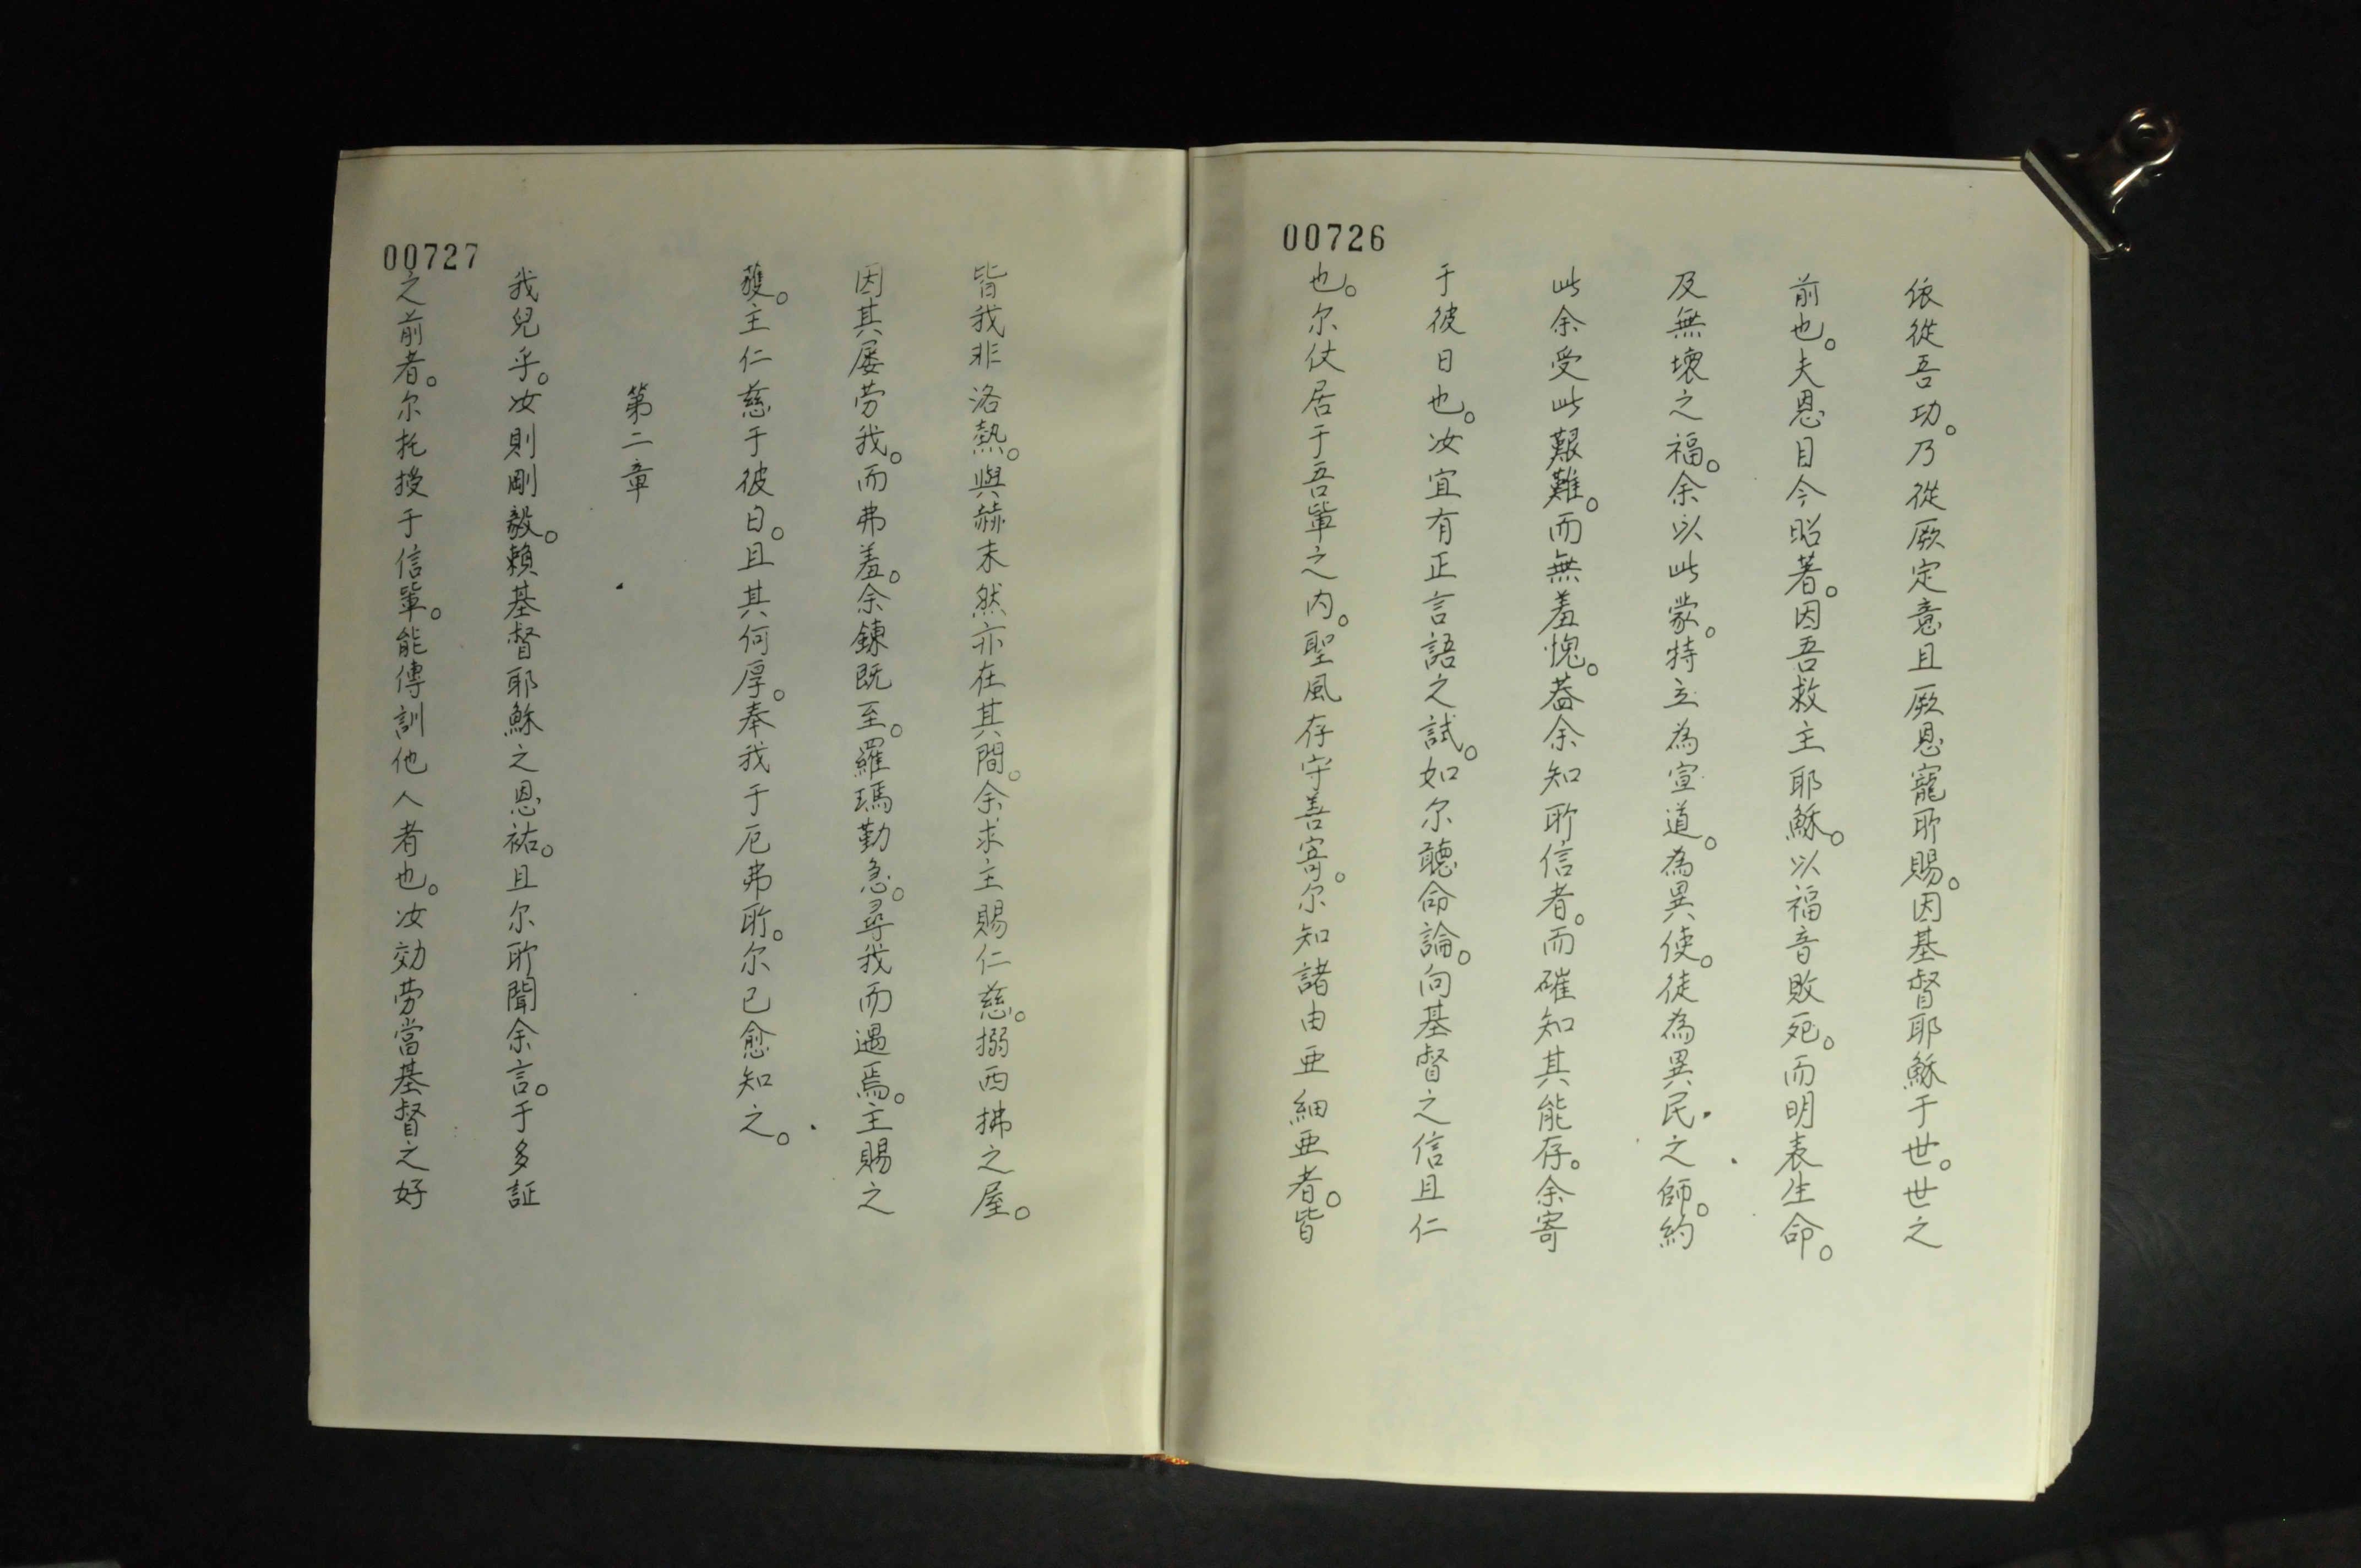 00726
依從吾功。乃從厥定意且厥恩寵所賜。因基督耶穌于世。世之
前也。夫恩目今昭著。因吾救主耶穌。以福音敗死。而明表生命。
及無壞之福。余以此蒙。特立為宣道。為異使。徒為異民之師。約
此余受此艱難。而無羞愧。蓋余知所信者。而確知其能存。余寄
于彼日也。汝宜有正言語之試。如尔聽命論。向基督之信且仁
也。尔仗居于吾軰之内。聖風存守善寄。尔知諸由亜細亜者。皆
00727
皆我非洛熱。與赫未然亦在其間。余求主賜仁慈。搦西拂之屋。
因其屡劳我。而弗羞。余鍊既至。羅瑪勤急。尋我而遇焉。主賜之
獲。主仁慈于彼日。且其何厚。奉我于厄弗所。尔已愈知之。
第二章
我兒乎。汝則剛毅。賴基督耶穌之恩祐。且尔所聞余言。于多証
之前者。尔托授于信軰。能傳訓他人者也。汝効劳當基督之好